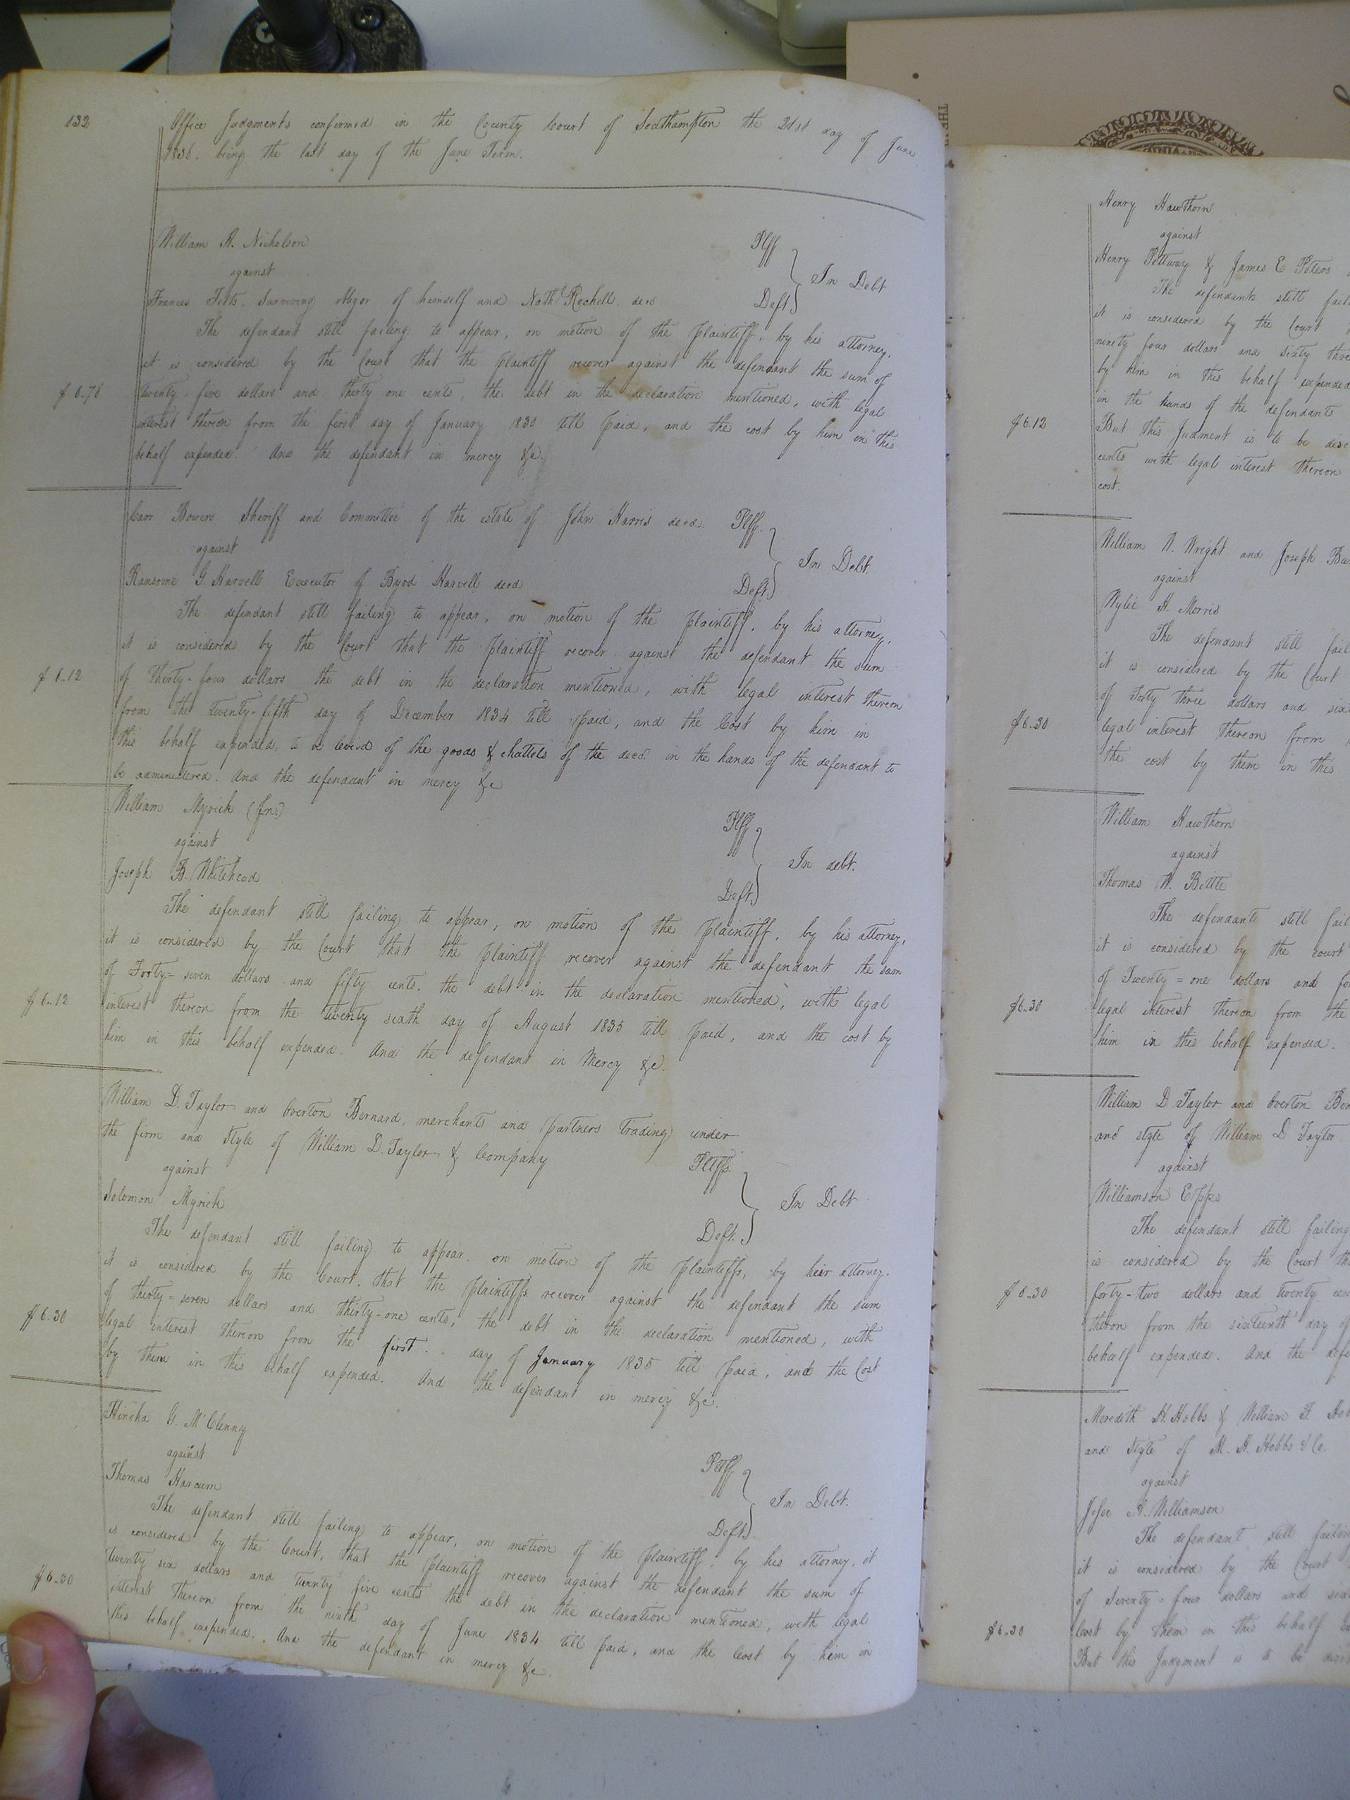 132
Office Judgments confirmed in the County Court of Southampton the 21st day of June
1836. being the last day of the June Term.
William A. Nicholson Plff
against In Debt
Frances Fitts. Surviving obligor of himself and Nath. Rochell decd Deft
The defendant still failing to appear, on motion of the plaintiff, by his attorney,
it is considered by the Court that the plaintiff recover against the defendant the sum of
twenty five dollars and thirty one cents, the debt in the declaration mentioned, with legal
$6.78
interest thereon from the first day of January 1830 till paid, and the cost by him in this
behalf expended. And the defendant in mercy &c.
Carr Bowers Sheriff and Committee of the estate of John Harris decd. Plff.
against In Debt.
Ransome G Harvell Executor of Byrd Harvell decd Deft
The defendant still failing to appear, on motion of the plaintiff, by his attorney,
it is considered by the Court that the plaintiff recover against the defendant the sum
$6.12
of thirty-four dollars the debt in the declaration mentioned, with legal interest thereon
from the twenty-fifth day of December 1834 till paid, and the Cost by him in
this behalf expended, to be levied of the goods & chattels of the decd. in the hands of the defendant to
be administered. And the defendant in mercy &c
William Myrick (Jnr) Plff
against In debt.
Joseph B. Whitehead Deft.
The defendant still failing to appear, on motion of the plaintiff, by his attorney,
it is considered by the Court that the plaintiff recover against the defendant the sum
of Forty=seven dollars and fifty cents. the debt in the declaration mentioned, with legal
$6.12
interest thereon from the twenty sixth day of August 1835 till paid, and the cost by
him in this behalf expended. And the defendant in Mercy &c.
William D. Taylor and Overton Bernard, merchants and partners trading under
the firm and style of William D. Taylor & Company Pltffs.
against In Debt
Solomon Myrick Deft.
The defendant still failing to appear. on motion of the plaintiffs, by their attorney.
it is considered by the Court. that the plaintiffs recover against the defendant the sum
of thirty=seven dollars and thirty-one cents, the debt in the declaration mentioned, with
$6.30
legal interest thereon from the first day of January 1835 till paid, and the Cost
by them in this behalf expended. And the defendant in mercy &c.
G. McClenny Pltff
against In Debt.
Thomas Harcum Deft.
The defendant still failing to appear, on motion of the plaintiff, by his attorney, it
is considered by the Court, that the plaintiff recover against the defendant the sum of
twenty six dollars and twenty five cents the debt in the declaration mentioned, with legal
$6.30
interest thereon from the ninth day of June 1834 till paid, and the Cost by him in
this behalf expended. And the defendant in mercy &c.
Henry Hawthorn
against
Henry Pettway & James E Peters
The defendants still
it is considered by the Court
ninety four dollars and sixty
by him in this behalf expended
in the hands of the defendants
$6.12
But this Judgment is to be
cents with legal interest thereon
cost.
William W. Wright and Joseph
against
Wylie H. Morris
The defendant still
it is considered by the Court
of Forty three dollars and
$6.30
legal interest thereon from
the cost by them in this
William Hawthorn
against
Thomas W. Bittle
The defendants still
it is considered by the court
of Twenty=one dollars and
$6.30
legal interest thereon from the
him in this behalf expended.
William D Taylor and Overton
and style of William D Taylor
against
Williamson Epps
The defendant still failing
is considered by the Court
$6.30
forty-two dollars and twenty
theron from the sixteenth day
behalf expended. And the
Meredith H. Hobbs & William
and style of M. H. Hobbs & Co.
against
Jesse A. Williamson
The defendant still
it is considered by the Court
of Seventy-four dollars and
$6.30
Cost by them in this behalf
But this Judgment is to be